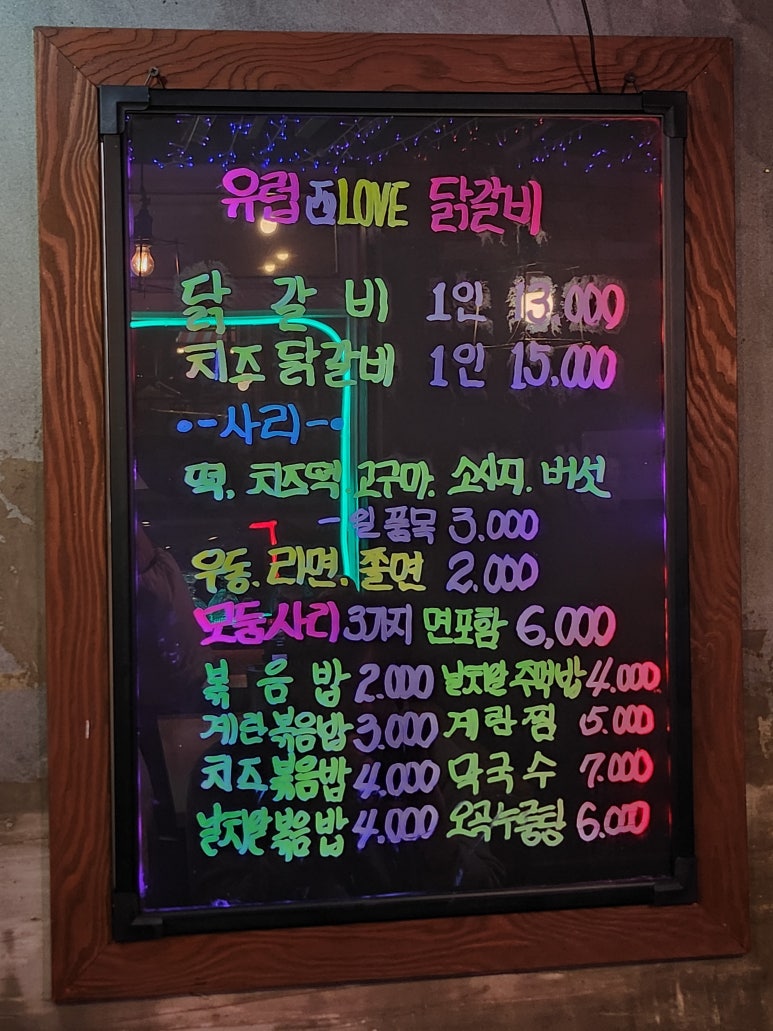 유럽 LOVE 닭갈비
닭 갈 비 1인 13,000
치즈 닭갈비 1인 15,000
•-사리-•
떡, 치즈떡 고구마. 소시지. 버섯
- 일 품목 3.000
우동. 라면. 쫄면 2.000
모둠사리 3가지 면포함 6,000
볶 음 밥 2.000 날치알 주먹밥 4.000
계란볶음밥 3.000 계 란 찜 5.000
치즈볶음밥 4,000 막국수 7.000
날치알볶음밥 4.000 오곡누룽탕 6.000